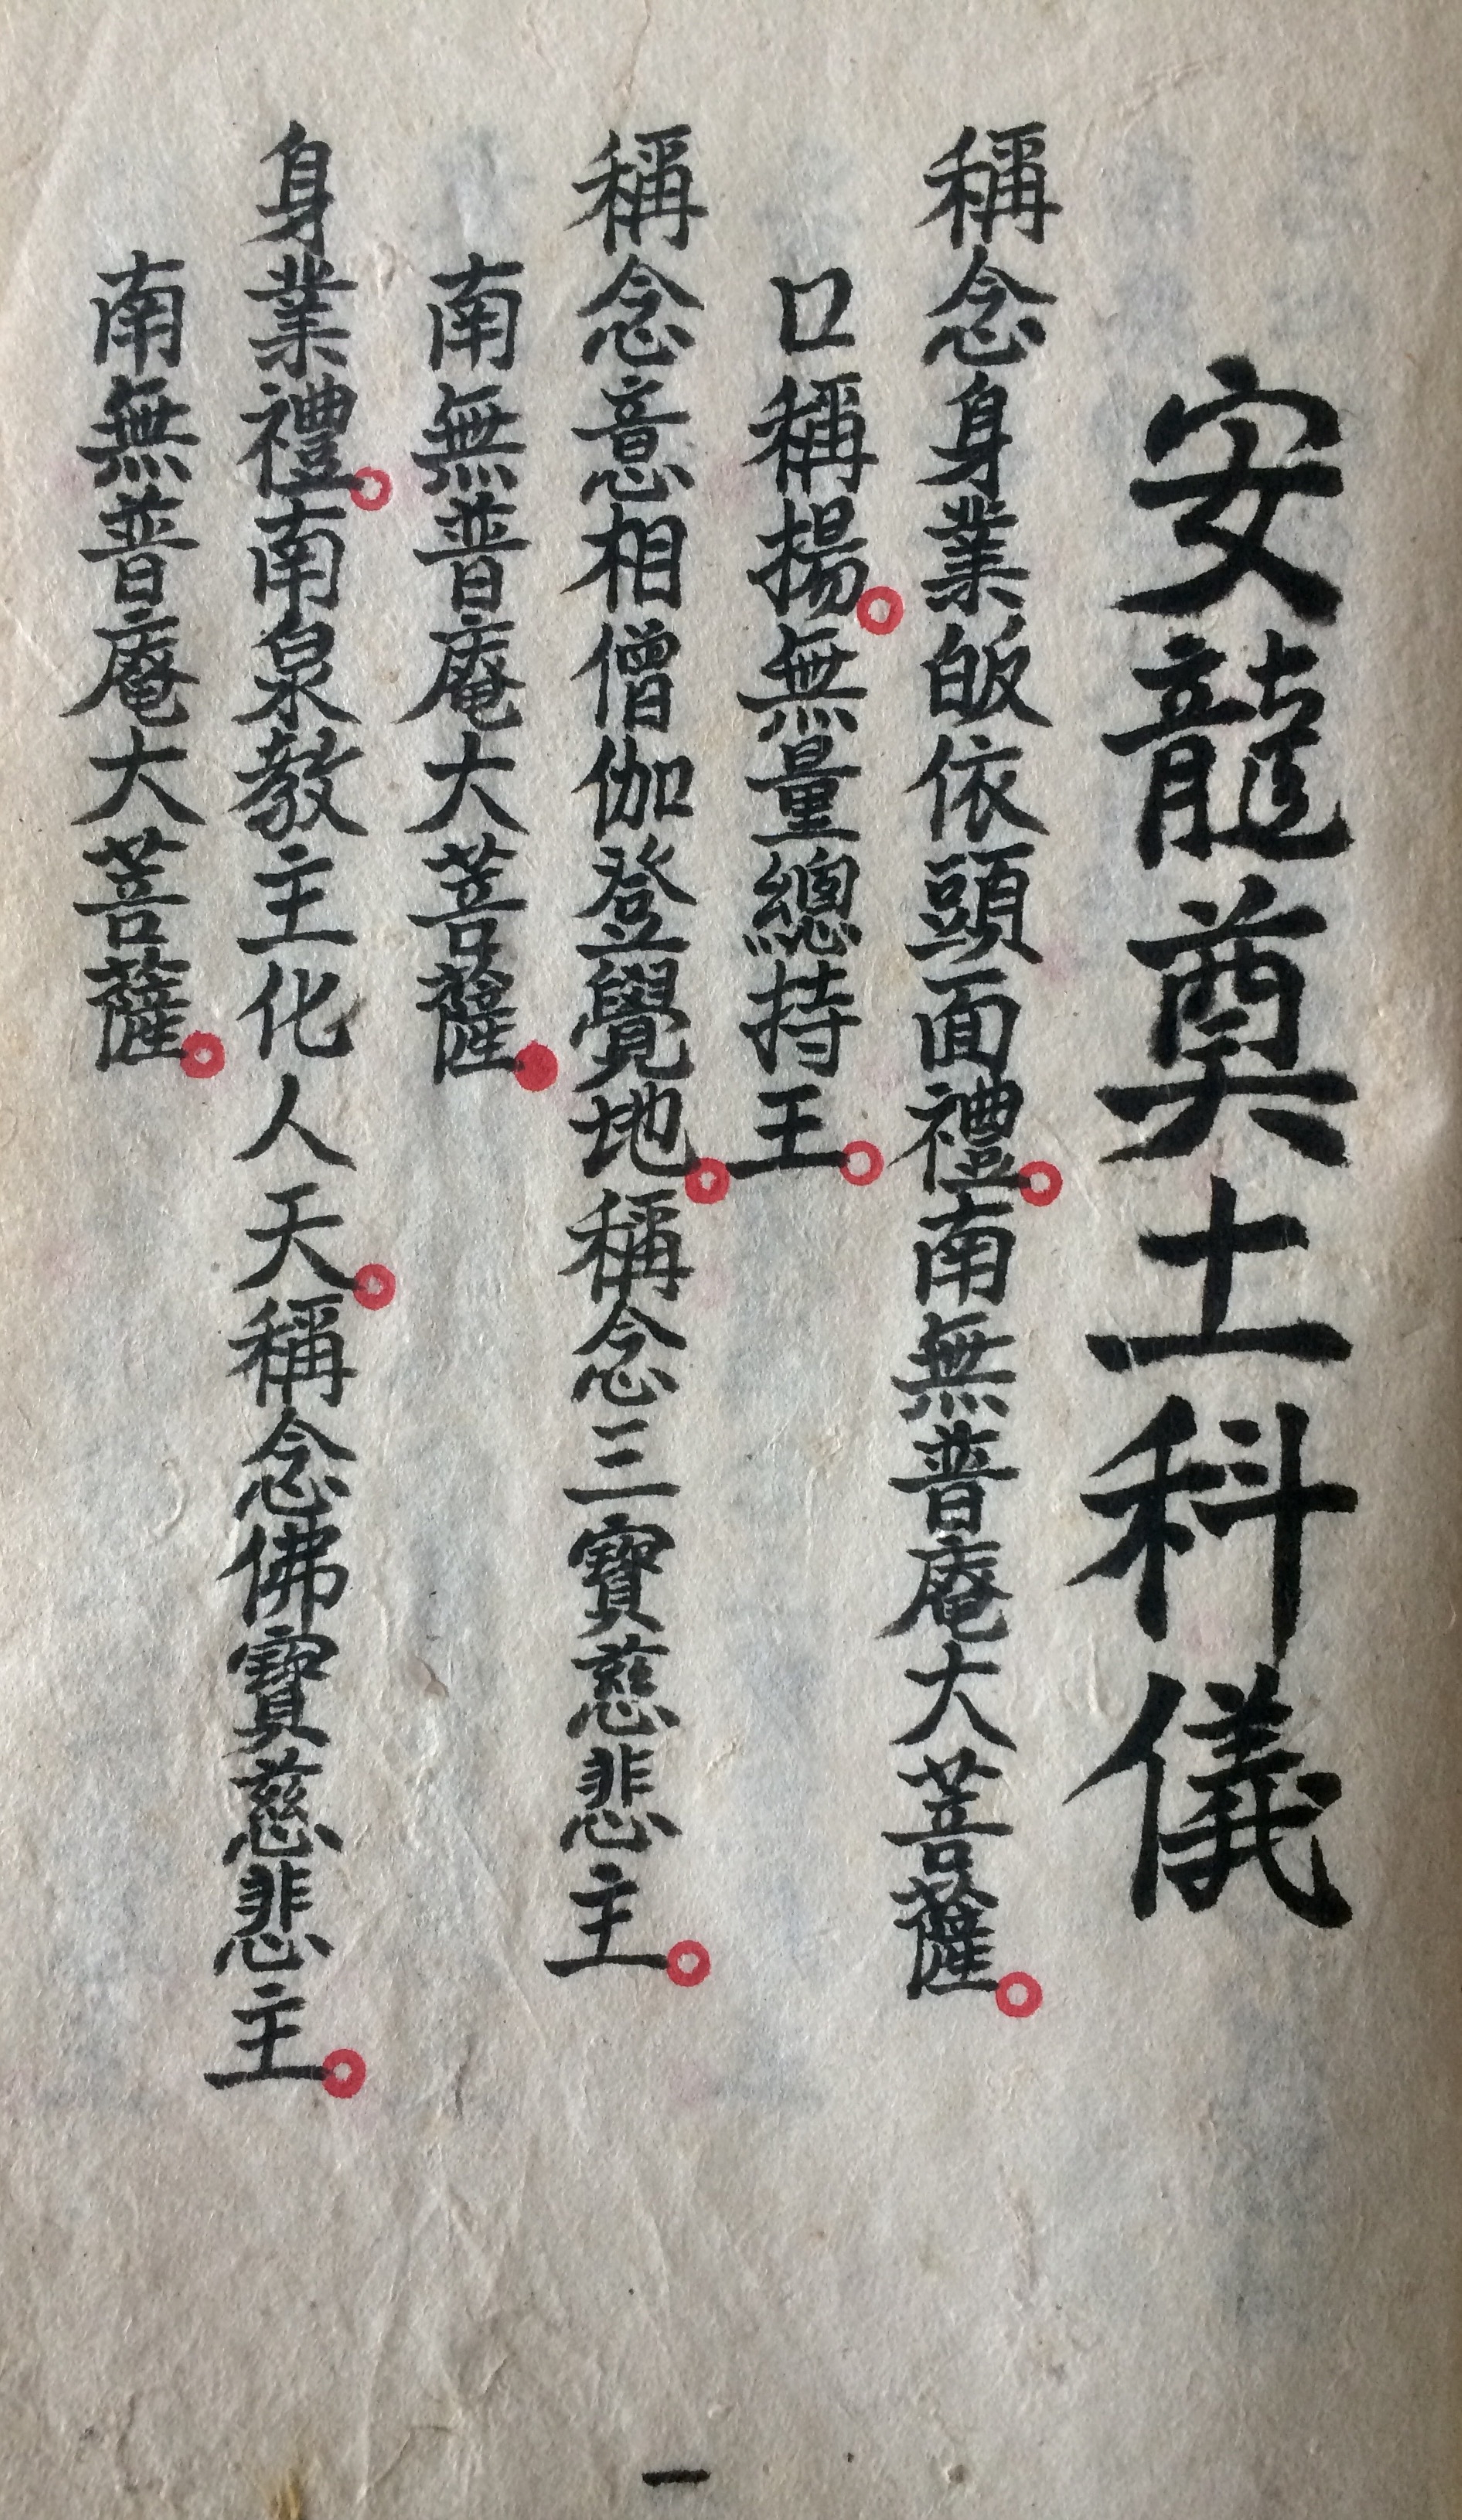 安龍奠土科儀
稱念身業皈依頭面禮。南無普庵大菩薩。
口稱揚。無量總持王。
稱念意相僧伽登覺地。稱念三寶慈悲主。
南無普庵大菩薩。
身業禮。南泉教主化人天。稱念佛寶慈悲主。
南無普庵大菩薩。
一